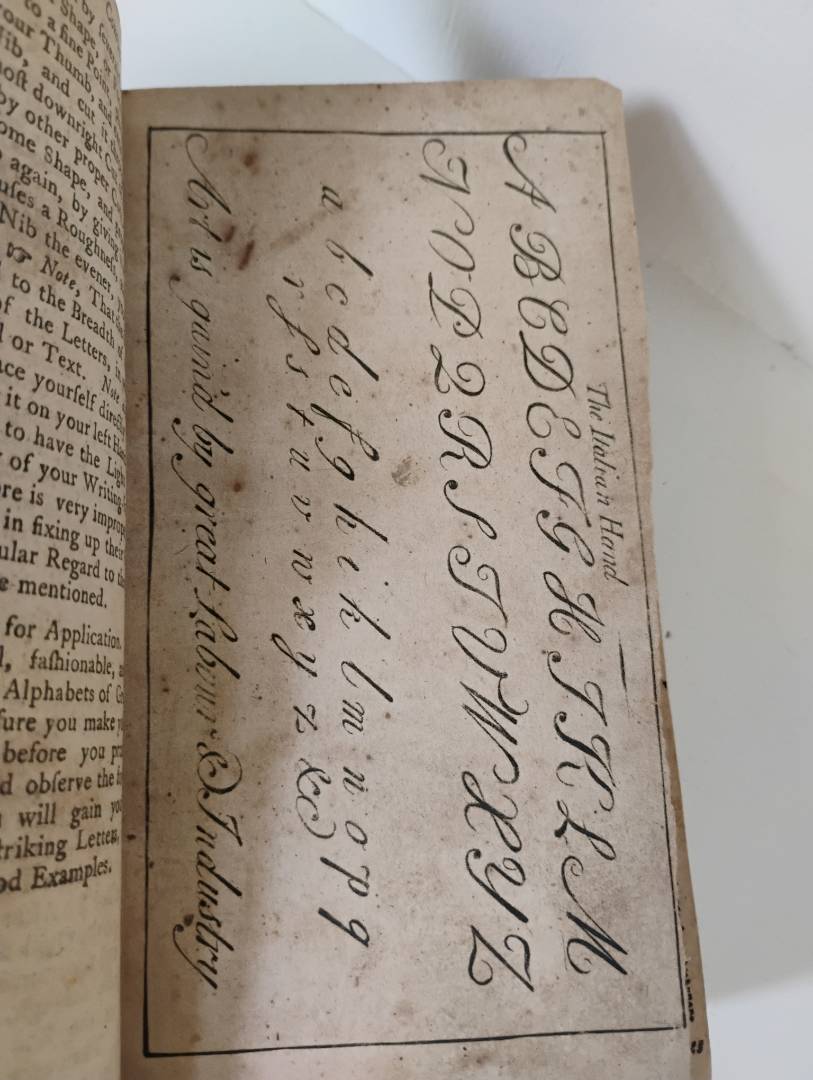 by
Shape, or
to a fine Point,
your Thumb, and
Nib, and cut it
moſt downright
by other proper
ome Shape, and
again, by giving
uſes a Roughneſs,
Nib the evener,
☞ Note, That
to the Breadth of
of the Letters,
or Text. Note
ce yourſelf
it on your left
to have the
of your Writing
re is very
in fixing up their
ular Regard to
mentioned.
for Application.
faſhionable,
Alphabets of
ſure you make
before you
d obſerve the
will gain
triking Letters,
od Examples.
The Italian Hand
A B C D E F G H I K L M
N O P Q R S T V W X Y Z
a b c d e f g h i k l m n o p q
r ſ s t u v w x y z &c
Art is gain'd by great Labour & Industry